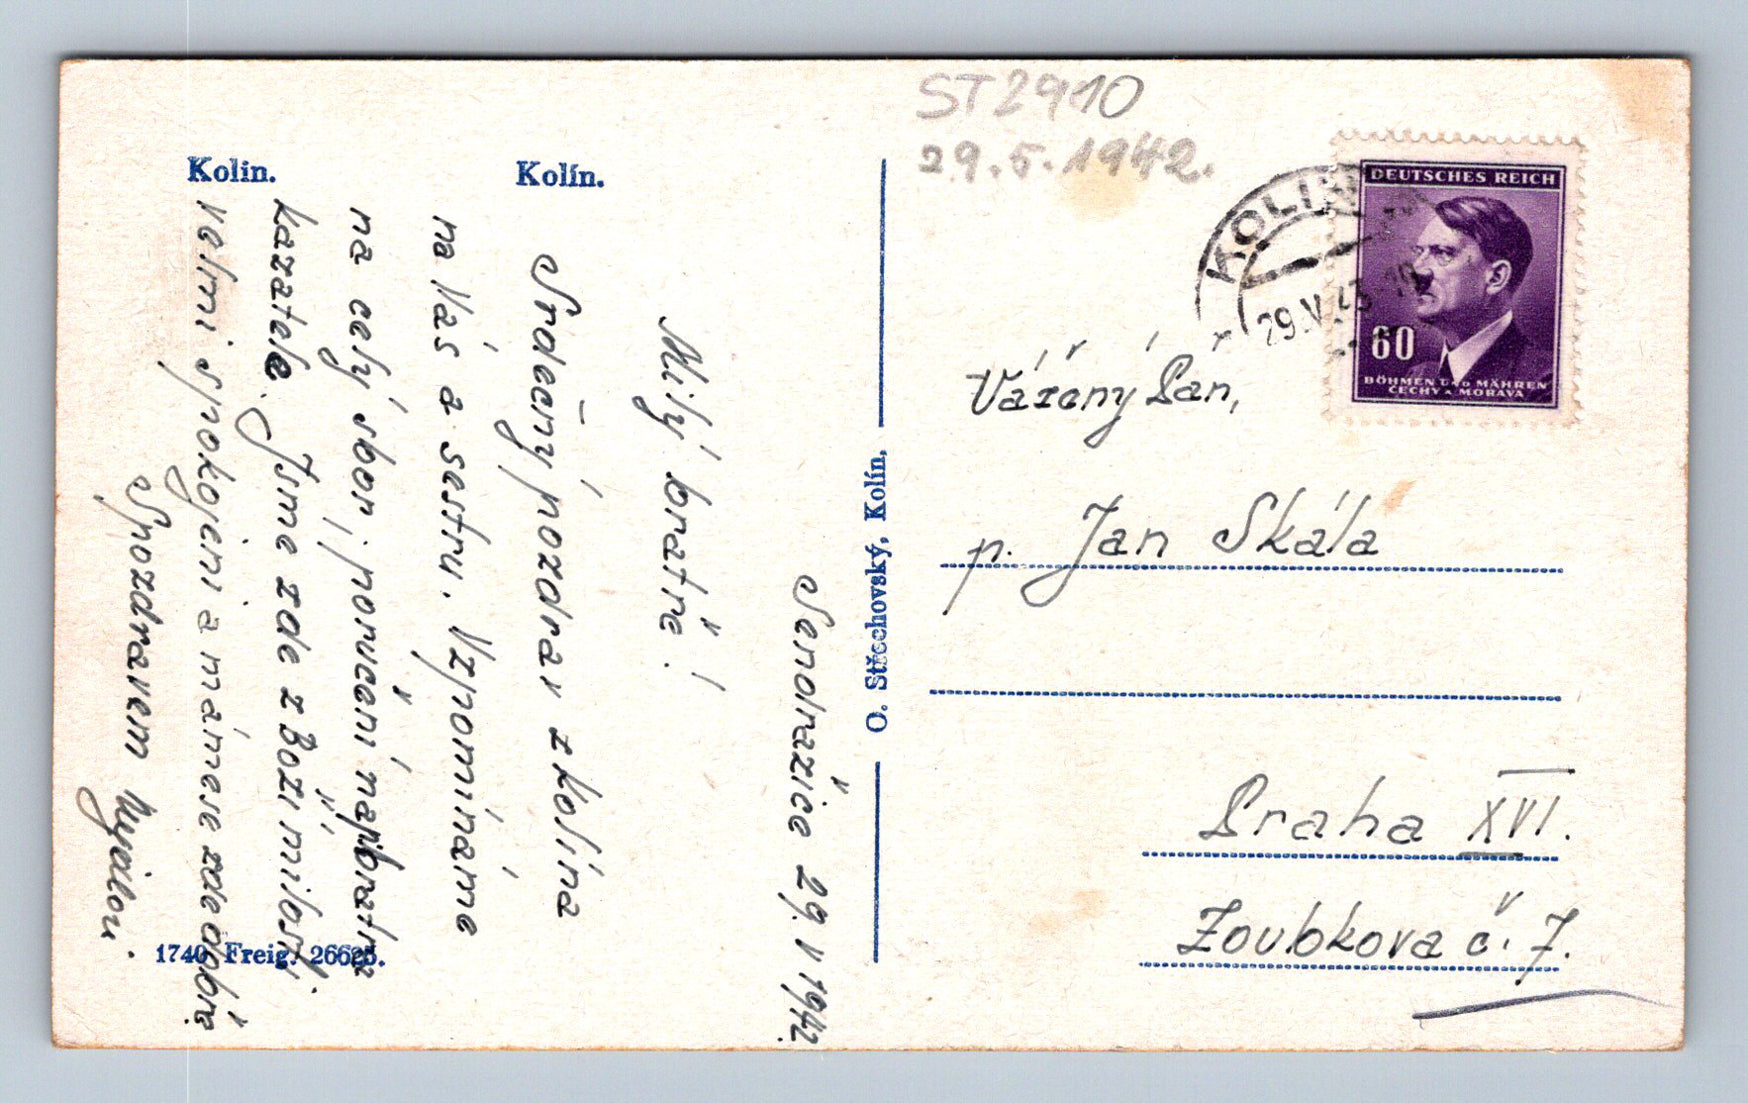 ST2910
29.5.1942.
Kolin.
Kolín.
Sendražice 29 V 1942.
Milý bratře!
Srdečný pozdrav z Kolína
na Vás a sestru. Vzpomínáme
na celý sbor, poručení na bratra
kazatele. Jsme zde z Boží milosti
velmi spokojeni a máme se zde dobře
S pozdravem
1740 Freig. 26625.
O. Střechovský, Kolín,
KOLIN
29.V.43-10
DEUTSCHES REICH
60
BÖHMEN UND MÄHREN
ČECHY A MORAVA
Vážený Pán,
p. Jan Skála
Praha XVI.
Zoubkova č. 7.